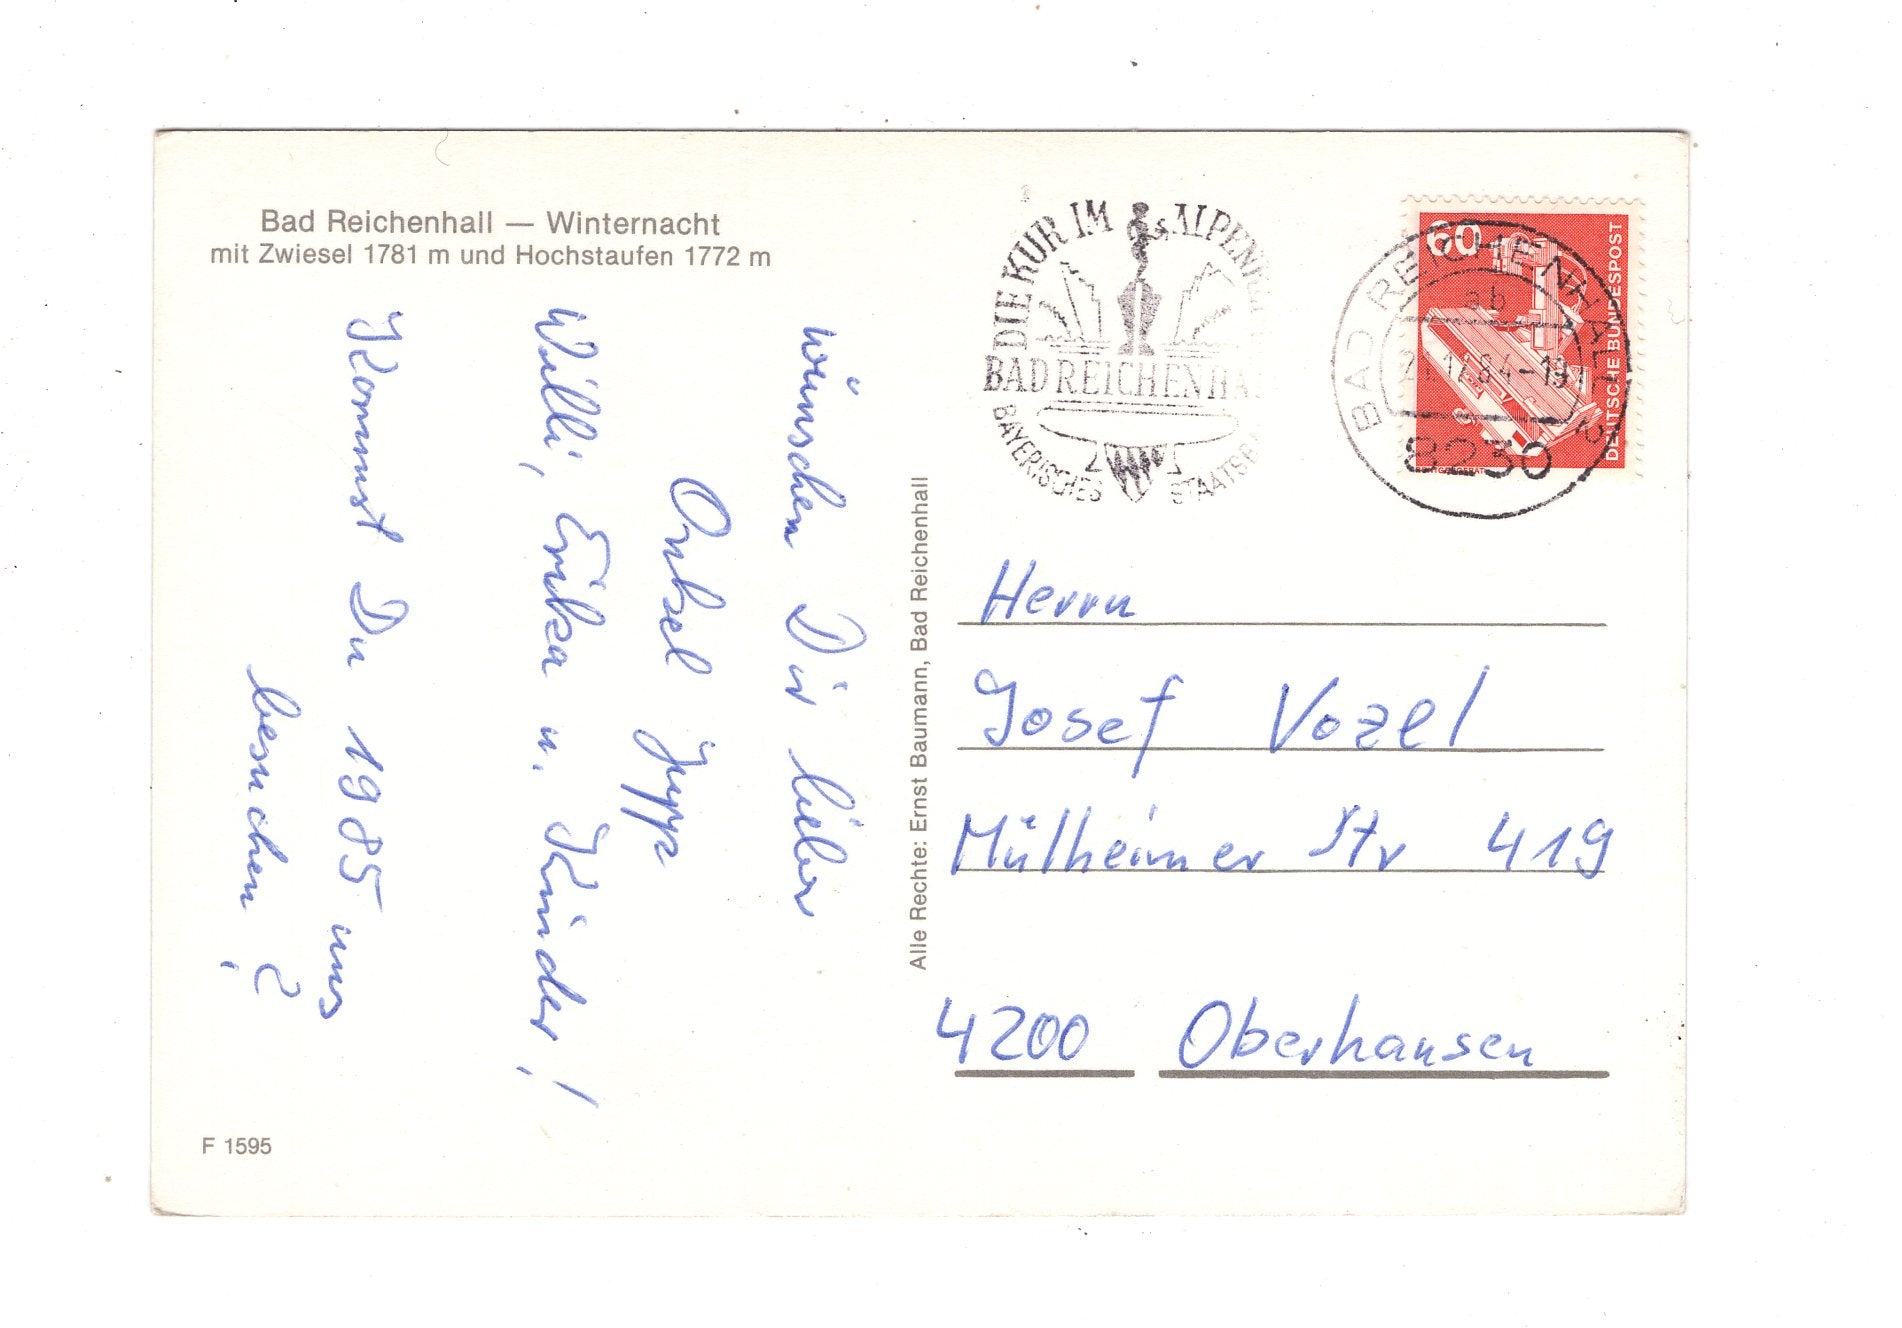 Bad Reichenhall — Winternacht
mit Zwiesel 1781 m und Hochstaufen 1772 m
wünschen Dir lieber
Onkel Jupp
Willi, Erika u. Kinder!
Kommst Du 1985 uns
besuchen?
F 1595
Alle Rechte: Ernst Baumann, Bad Reichenhall
DIE KUR IM ALPEN
BAD REICHENHA
BAYERISCHES STAATSB
60
DEUTSCHE BUNDESPOST
BAD REICHENHALL 2
ab
21.12.84-19
8230
Herrn
Josef Vozel
Mülheimer Str 419
4200 Oberhausen